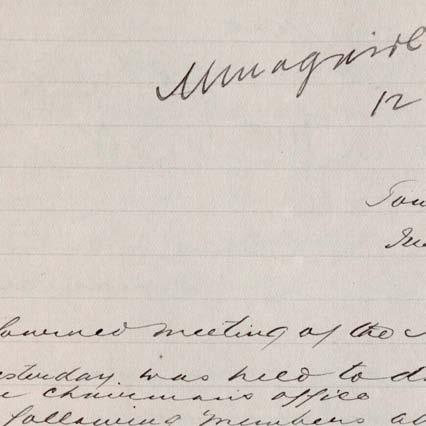 12
Tow
journed meeting of the
yesterday was held to d
chairmans office
following members ab